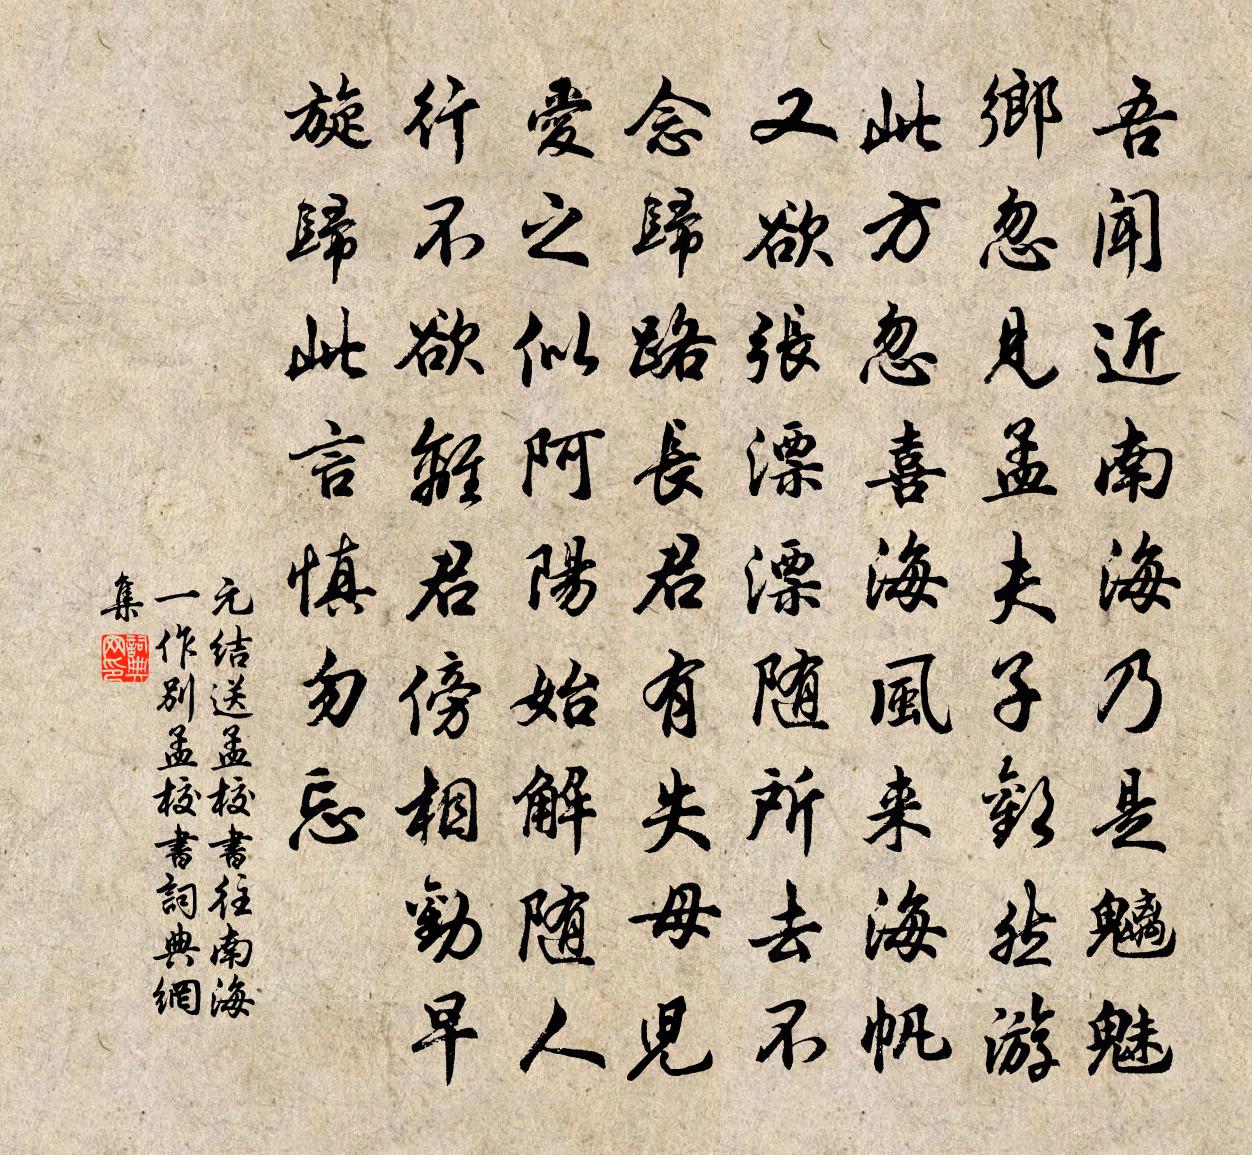 吾聞近南海乃是魑魅
鄉忽見孟夫子歡然游
此方忽喜海風来海帆
又欲張漂漂随所去不
念歸路長君有失母兒
愛之似阿陽始解随人
行不欲離君傍相勸早
旋歸此言慎勿忘
元结送孟校書往南海
一作別孟校書詞典網
集
詞典网印